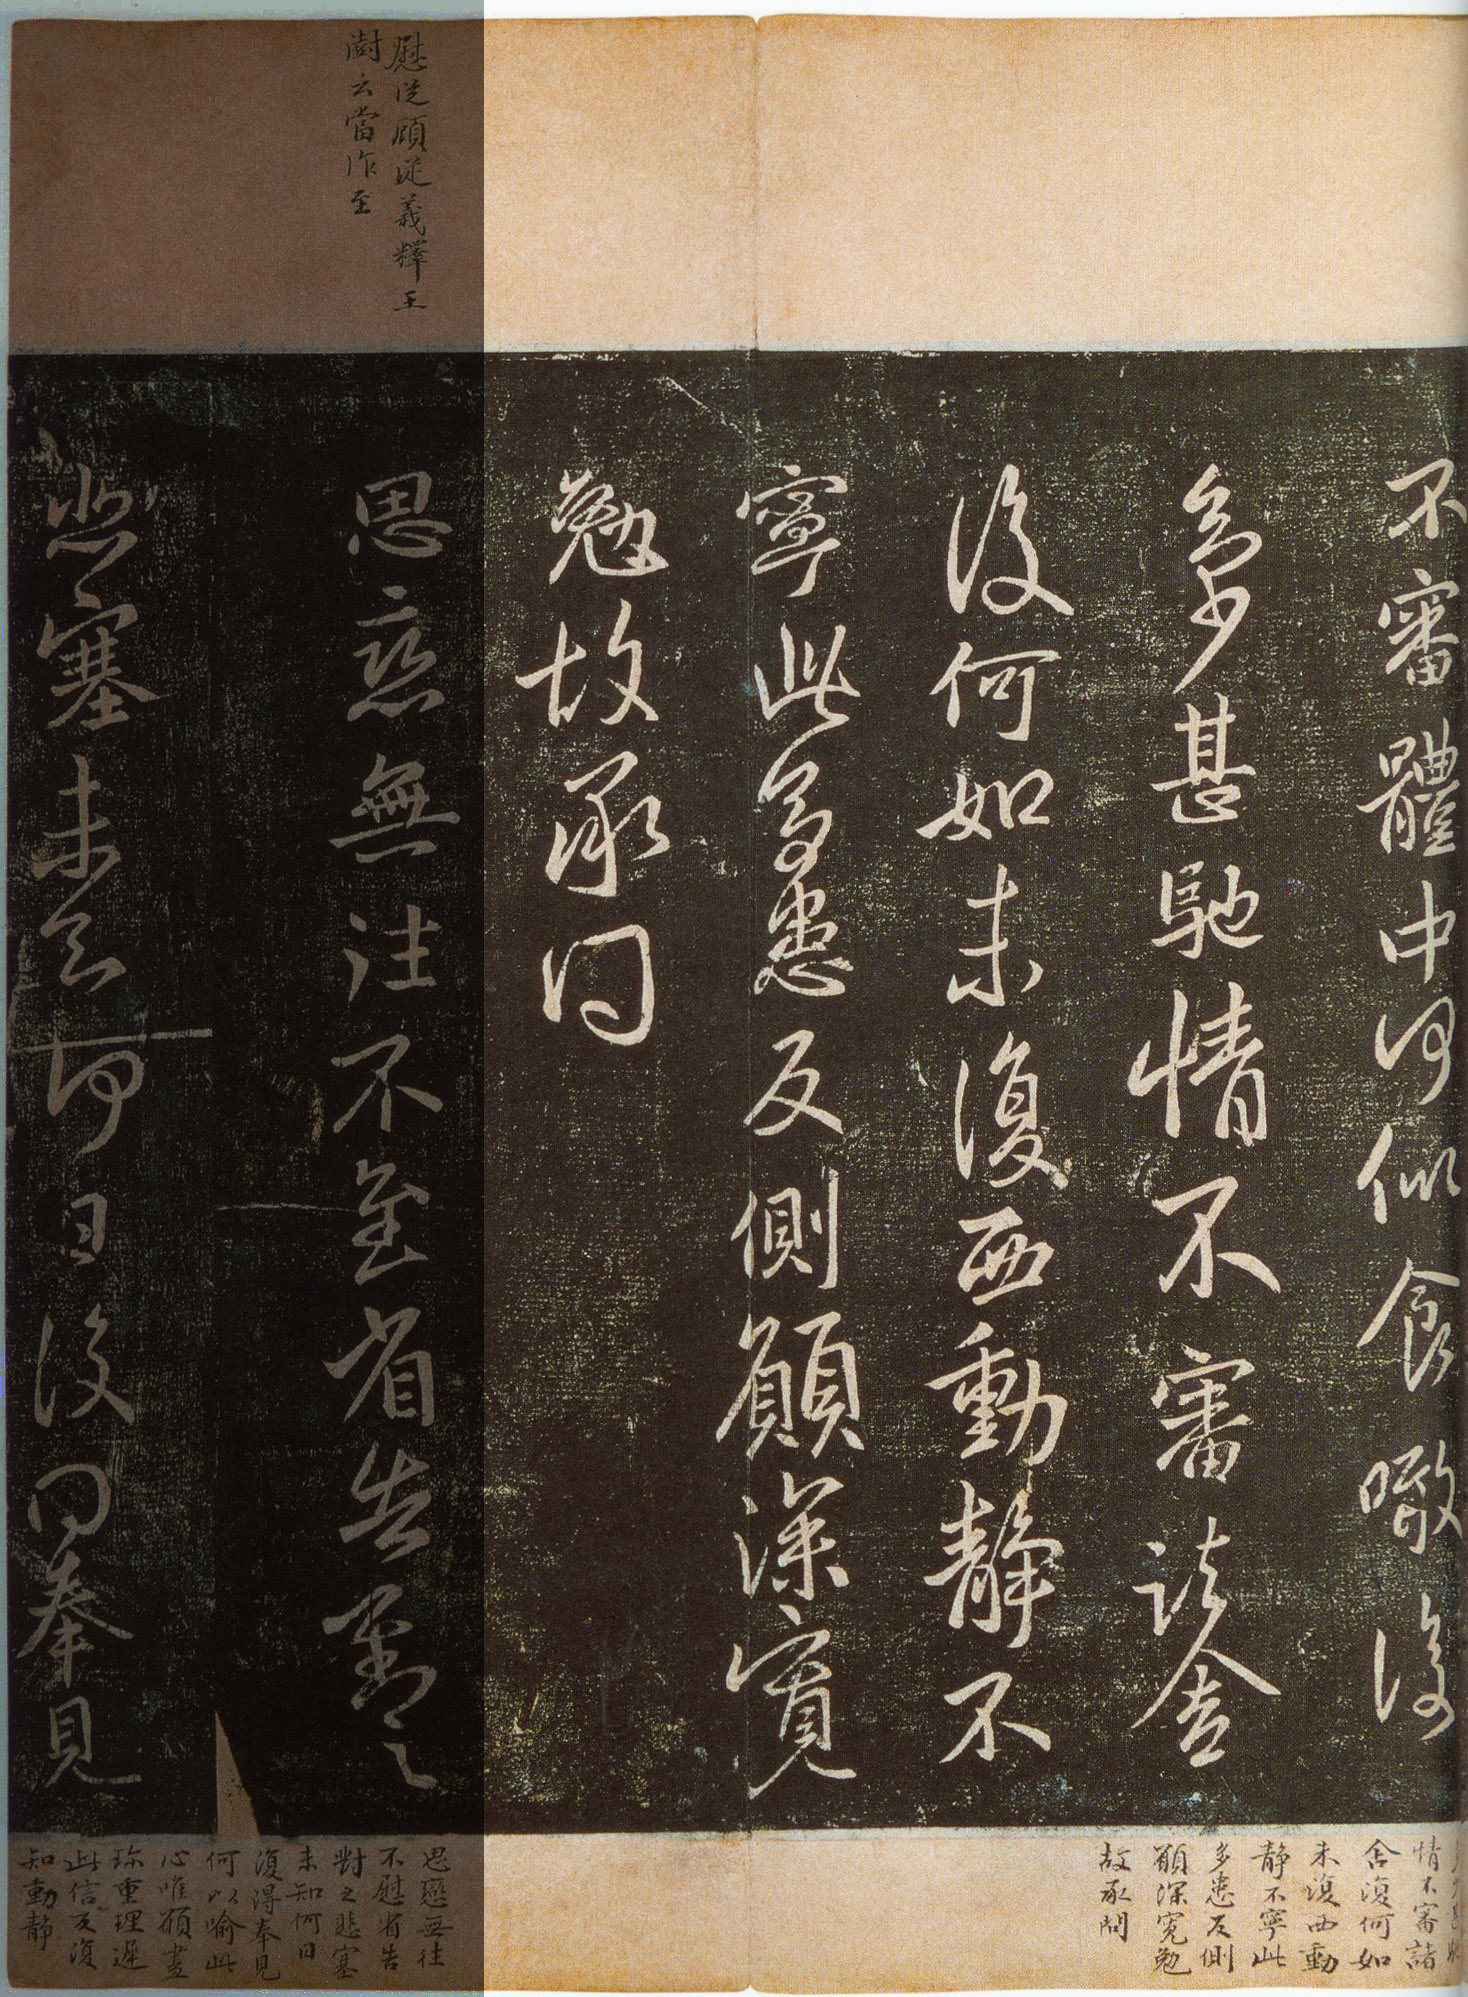 不審體中何似食噉復
多少甚馳情不審諸舍
復何如未復西動静不
寧此多患反側願深寬
勉故承問
思戀無往不至省告對之
悲塞未知何日復得奉見
慰從顧從義釋王
澍云當作至
情不審諸
舍復何如
未復西動
静不寧此
多患反側
願深寬勉
故承問
思戀無往
不慰省告
對之悲塞
未知何日
復得奉見
何以喻此
心唯願盡
珍重理遲
此信反復
知動静